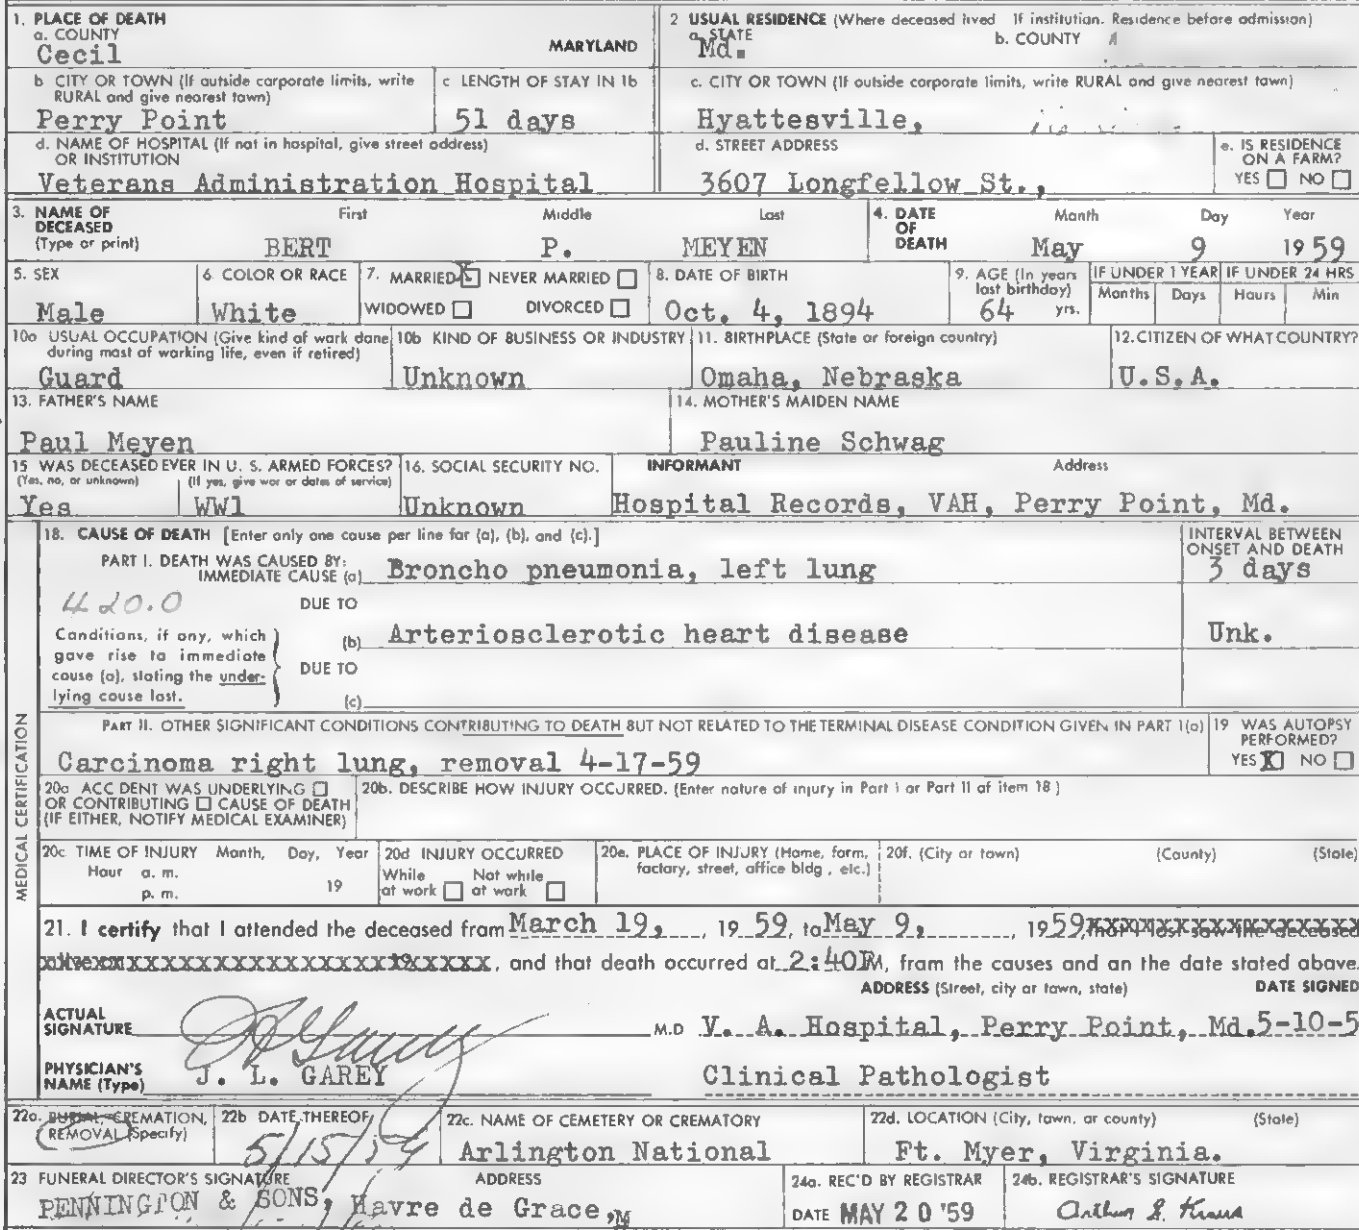 1. PLACE OF DEATH
a. COUNTY
Cecil
MARYLAND
2 USUAL RESIDENCE (Where deceased lived If institution. Residence before admission)
a. STATE
Md.
b. COUNTY
b CITY OR TOWN (If outside corporate limits, write
RURAL and give nearest town)
Perry Point
c LENGTH OF STAY IN 1b
51 days
c. CITY OR TOWN (If outside corporate limits, write RURAL and give nearest town)
Hyattesville,
d. NAME OF HOSPITAL (If not in hospital, give street address)
OR INSTITUTION
Veterans Administration Hospital
d. STREET ADDRESS
3607 Longfellow St.,
e. IS RESIDENCE
ON A FARM?
YES NO
3. NAME OF
DECEASED
(Type or print)
First Middle Last
BERT P. MEYEN
4. DATE
OF
DEATH
Month Day Year
May 9 1959
5. SEX
Male
6. COLOR OR RACE
White
7. MARRIED X NEVER MARRIED
WIDOWED DIVORCED
8. DATE OF BIRTH
Oct. 4, 1894
9. AGE (In years
last birthday)
64 yrs.
IF UNDER 1 YEAR
Months Days
IF UNDER 24 HRS
Hours Min
10a USUAL OCCUPATION (Give kind of work done
during most of working life, even if retired)
Guard
10b KIND OF BUSINESS OR INDUSTRY
Unknown
11. BIRTHPLACE (State or foreign country)
Omaha, Nebraska
12. CITIZEN OF WHAT COUNTRY?
U.S.A.
13. FATHER'S NAME
Paul Meyen
14. MOTHER'S MAIDEN NAME
Pauline Schwag
15 WAS DECEASED EVER IN U. S. ARMED FORCES?
(Yes, no, or unknown) (If yes, give war or dates of service)
Yes WW1
16. SOCIAL SECURITY NO.
Unknown
INFORMANT Address
Hospital Records, VAH, Perry Point, Md.
MEDICAL CERTIFICATION
18. CAUSE OF DEATH [Enter only one cause per line for (a), (b), and (c).]
INTERVAL BETWEEN
ONSET AND DEATH
PART I. DEATH WAS CAUSED BY:
IMMEDIATE CAUSE (a) Broncho pneumonia, left lung 3 days
420.0
DUE TO
Conditions, if any, which
gave rise to immediate
cause (a), stating the under-
lying cause last.
(b) Arteriosclerotic heart disease Unk.
DUE TO
(c)
PART II. OTHER SIGNIFICANT CONDITIONS CONTRIBUTING TO DEATH BUT NOT RELATED TO THE TERMINAL DISEASE CONDITION GIVEN IN PART 1(a)
Carcinoma right lung, removal 4-17-59
19 WAS AUTOPSY
PERFORMED?
YES X NO
20a ACC DENT WAS UNDERLYING
OR CONTRIBUTING CAUSE OF DEATH
(IF EITHER, NOTIFY MEDICAL EXAMINER)
20b. DESCRIBE HOW INJURY OCCURRED. (Enter nature of injury in Part I or Part II of item 18)
20c TIME OF INJURY Month, Day, Year
Hour a. m.
p. m. 19
20d INJURY OCCURRED
While Not while
at work at work
20e. PLACE OF INJURY (Home, farm,
factory, street, office bldg, etc.)
20f. (City or town) (County) (State)
21. I certify that I attended the deceased from March 19, 1959, to May 9, 1959, that I last saw the deceased
alive on 19, and that death occurred at 2:40PM, from the causes and on the date stated above.
ADDRESS (Street, city or town, state) DATE SIGNED
ACTUAL
SIGNATURE M.D V. A. Hospital, Perry Point, Md. 5-10-5
PHYSICIAN'S
NAME (Type) J. L. GAREY
Clinical Pathologist
22a. BURIAL, CREMATION,
REMOVAL (Specify)
22b DATE THEREOF
5/15/59
22c. NAME OF CEMETERY OR CREMATORY
Arlington National
22d. LOCATION (City, town, or county) (State)
Ft. Myer, Virginia.
23 FUNERAL DIRECTOR'S SIGNATURE ADDRESS
PENNINGTON & SONS, Havre de Grace,M
24a. REC'D BY REGISTRAR
DATE MAY 20 '59
24b. REGISTRAR'S SIGNATURE
Arthur S. Kraus